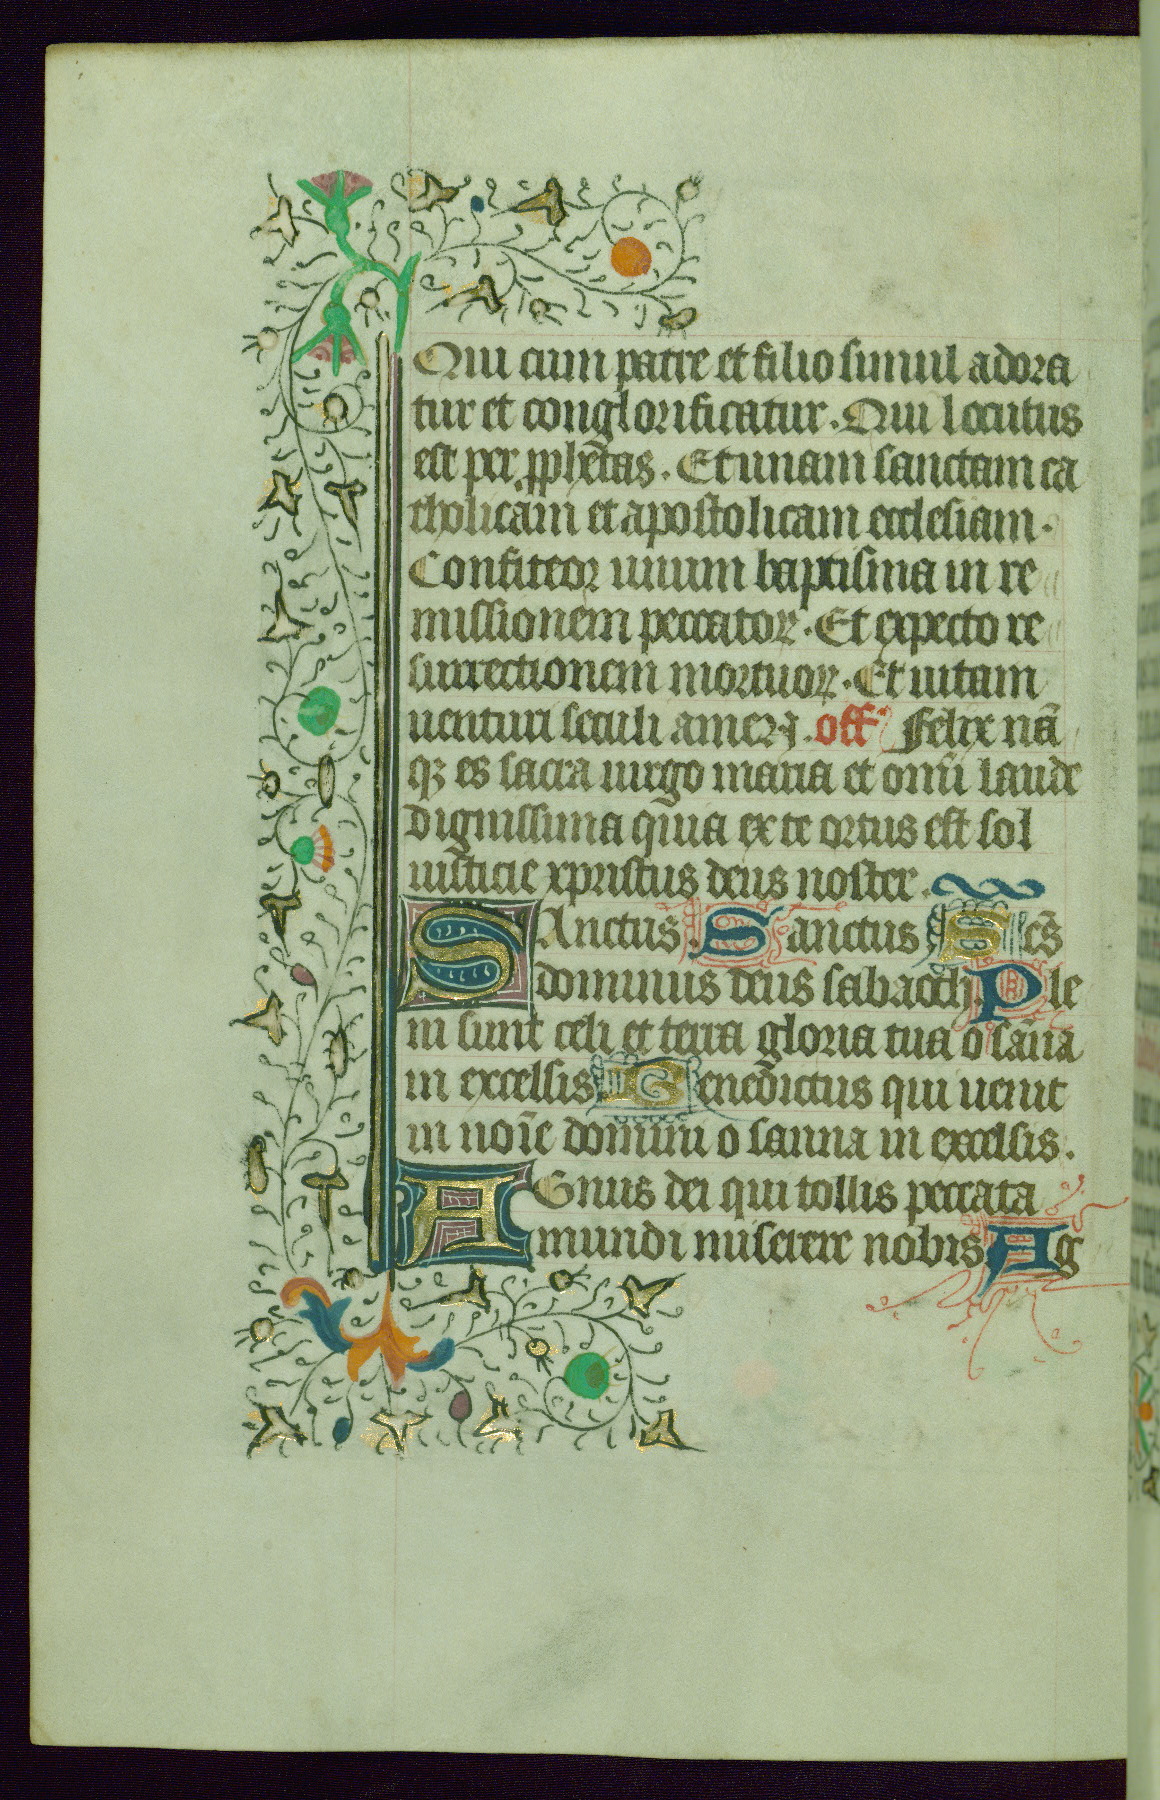 Qui cum patre et filio simul adora
tur et conglorificatur. Qui locutus
est per ꝓph̃etas. Et unam sanctam ca
tholicam et apostolicam ecclesiam.
Confiteor unum baptisma in re
missionem peccatoꝝ. Et expecto re
surrectionem mortuoꝝ. Et uitam
uenturi seculi amen. off̃ Felix nã
qꝫ es sacra uirgo maria et om̃i laude
dignissima quia ex te ortus est sol
iusticie xpristus deus noster.
SAnctus. Sanctus Scs̃
dominus deus sabaoth. Ple
ni sunt celi et terra gloria tua osãna
in excelsis Benedictus qui uenit
in noĩe domini osanna in excelsis.
AGnus dei qui tollis peccata
mundi miserere nobis Ag